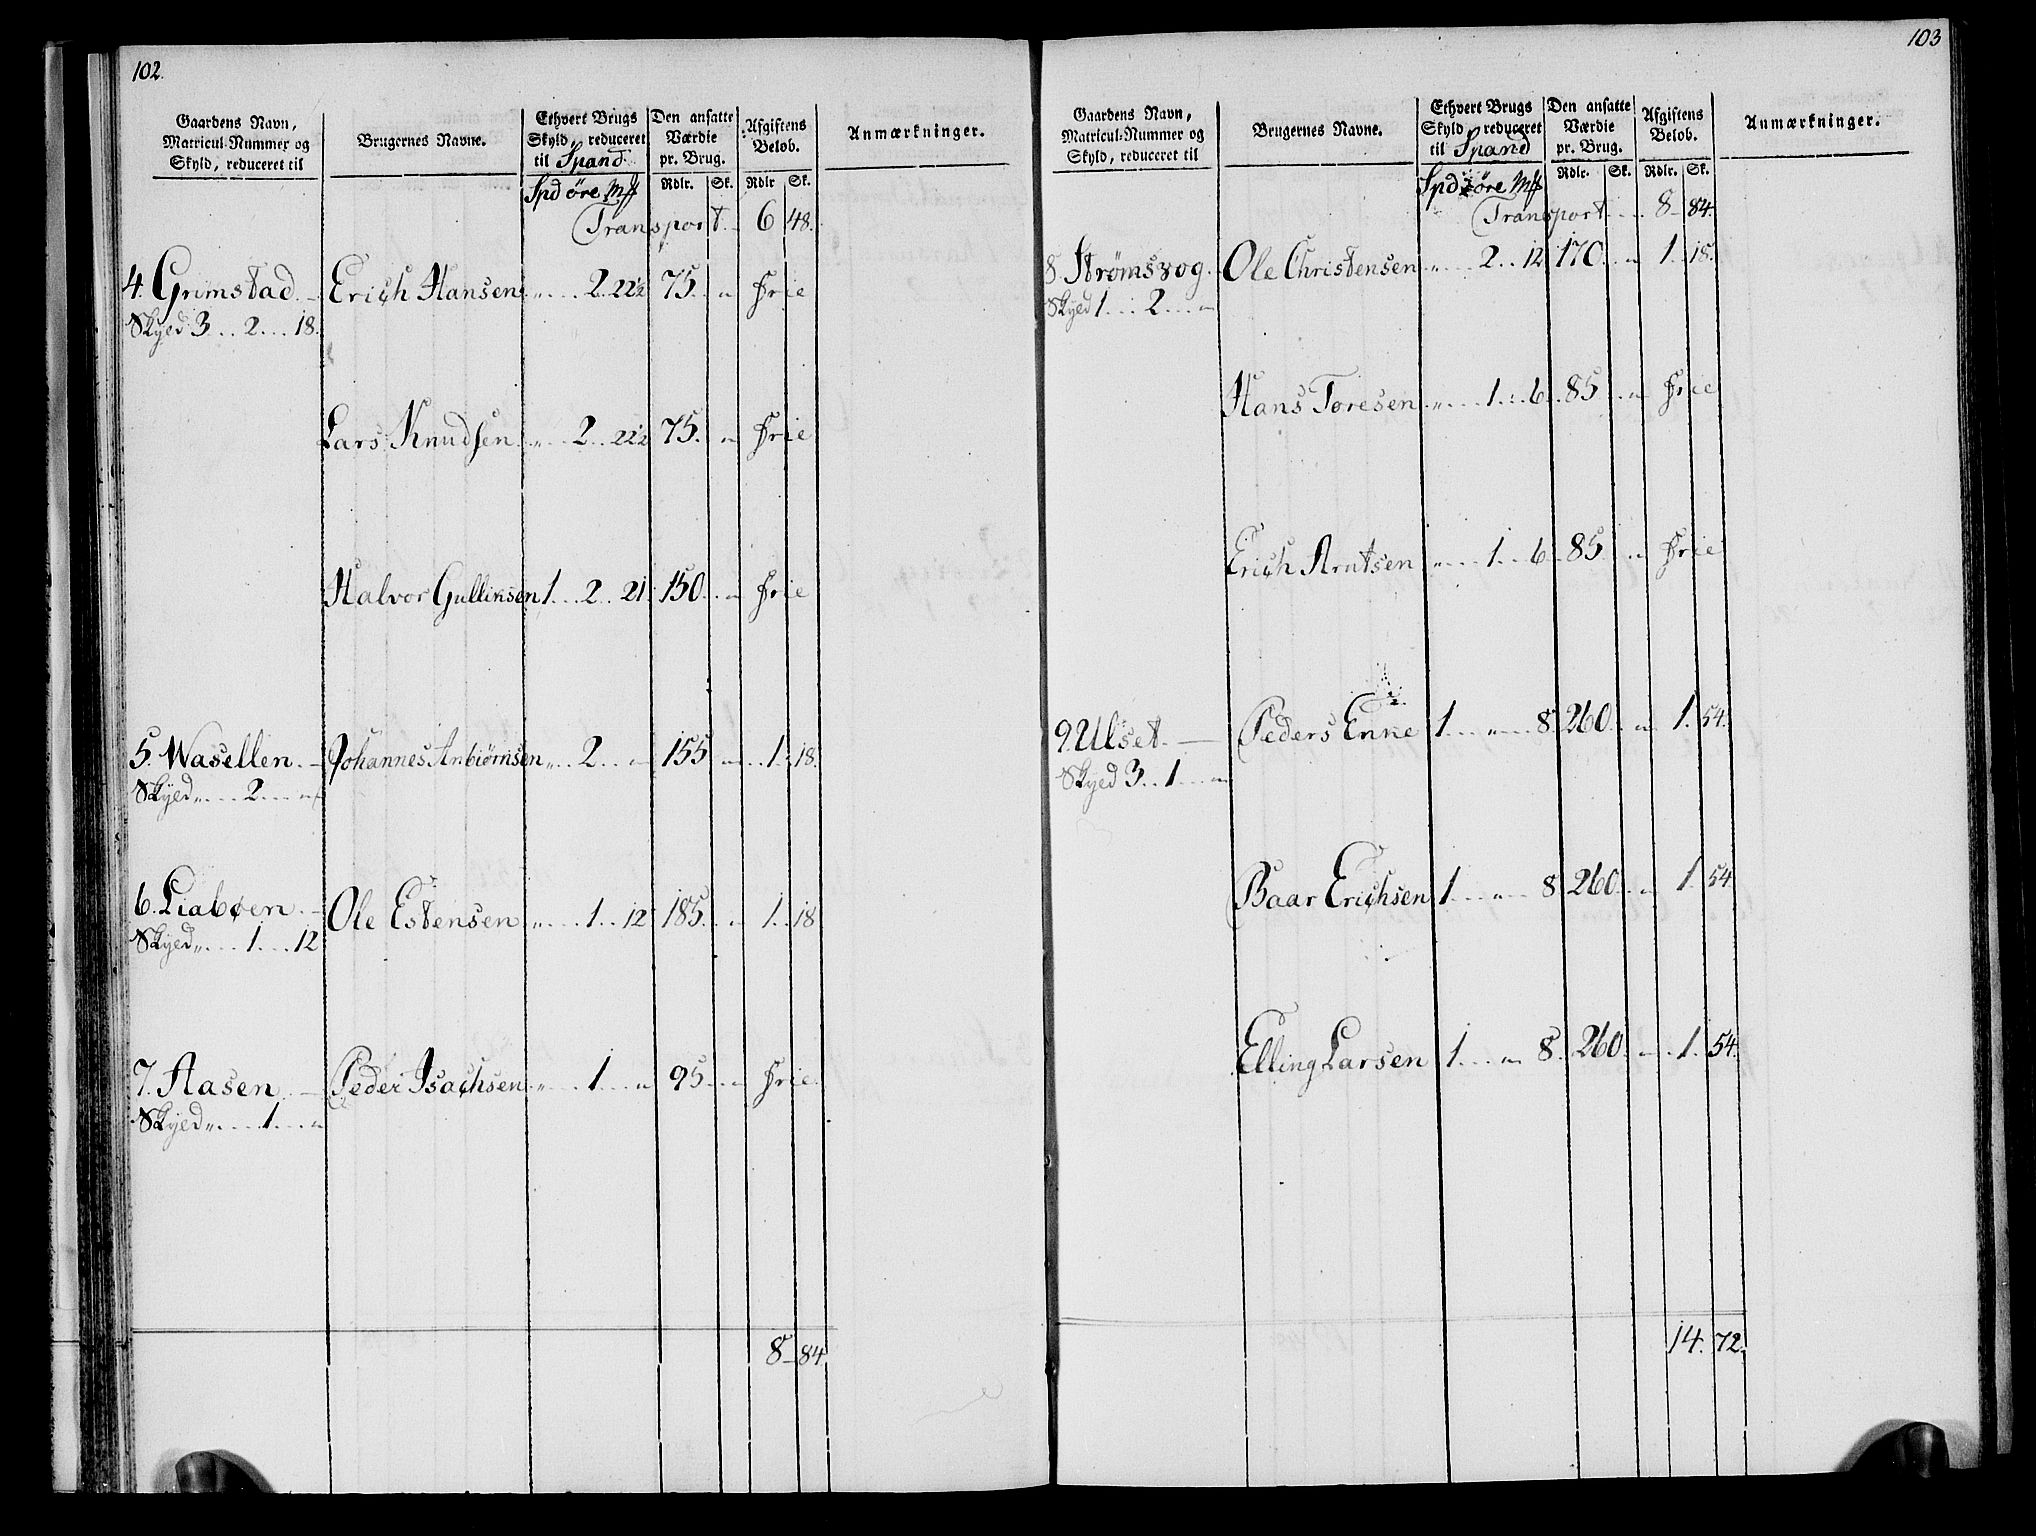 102.
Gaardens Navn, Matricul-Nummer og Skyld, reduceret til
Brugernes Navne.
Ethvert Brugs Skyld, reduceret til Spand.
Den ansatte Værdie pr. Brug.
Afgiftens Beløb.
Anmærkninger.
Spd öre Mk
Rdlr. Sk. Rdlr Sk.
Transport. 6 48.
4. Grimstad. Erich Hansen „ 2 22½ 75 „ Frie
Skyed 3 2 18.
Lars Knudsen „ 2 22½ 75. „ Frie
Halvor Gulliksen 1 2 21. 150. „ Frie
5. Wasellen. Johannes Anbiørnsen „ 2 „ 155 „ 1. 18.
Skyed „ 2 „
6. Liabøen. Ole Estensen „ 1 12 185. „ 1. 18
Skyed „ 1 12
7. Aasen Peder Isachsen „ 1 „ 95 „ Frie
Skyed „ 1 „
8 84
103
Gaardens Navn, Matricul-Nummer og Skyld, reduceret til
Brugernes Navne.
Ethvert Brugs Skyld, reduceret til Spand
Den ansatte Værdie pr. Brug.
Afgiftens Beløb.
Anmærkninger.
Spd öre Mk
Rdlr. Sk. Rdlr. Sk.
Transport 8 84.
8. Strømsvog. Ole Christensen „ 2 12 170 „ 1. 18.
Skyed 1 2 „
Hans Toresen „ 1 6 85 „ Frie
Erich Arntsen „ 1 6 85 „ Frie
9. Ulset. Peders Enke 1 „ 8 260. „ 1. 54.
Skyed 3 1 „
Baar Erichsen 1 „ 8 260 „ 1. 54
Elling Larsen 1 „ 8. 260. „ 1. 54.
14. 72.